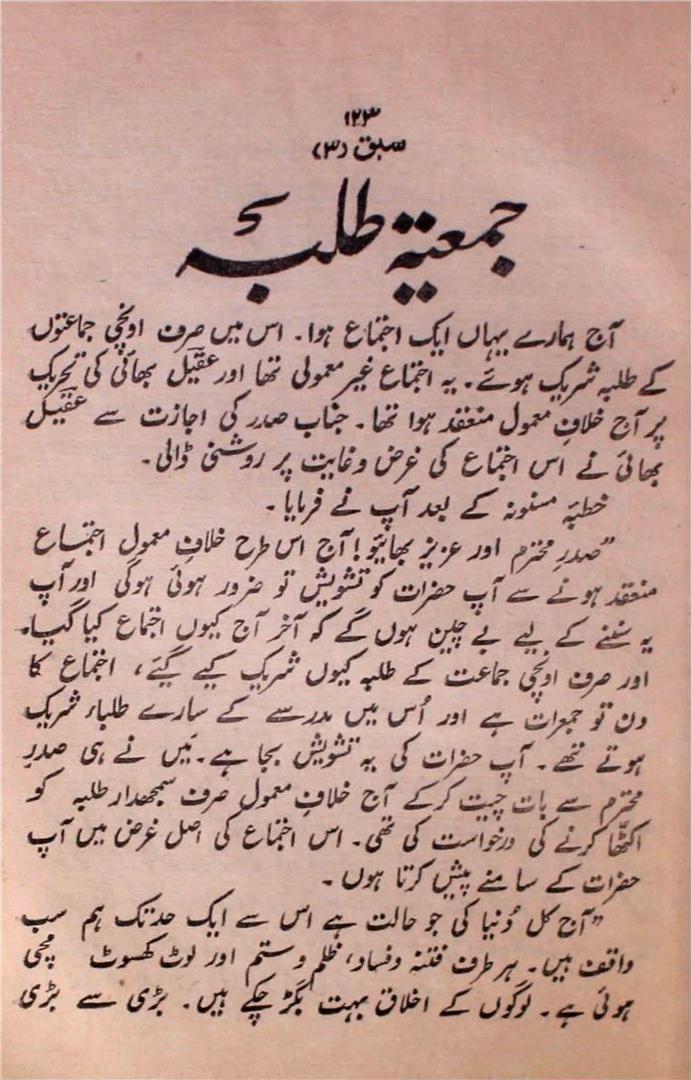 ۱۲۳
سبق (۳)
جمعیۃ طلبہ
آج ہمارے یہاں ایک اجتماع ہوا۔ اس میں صرف اونچی جماعتوں
کے طلبہ شریک ہوئے۔ یہ اجتماع غیر معمولی تھا اور عقیل بھائی کی تحریک
پر آج خلافِ معمول منعقد ہوا تھا۔ جناب صدر کی اجازت سے عقیل
بھائی نے اس اجتماع کی غرض و غایت پر روشنی ڈالی۔
خطبۂ مسنونہ کے بعد آپ نے فرمایا۔
”صدرِ محترم اور عزیز بھائیو! آج اس طرح خلافِ معمول اجتماع
منعقد ہونے سے آپ حضرات کو تشویش تو ضرور ہوئی ہوگی اور آپ
یہ سننے کے لیے بے چین ہوں گے کہ آخر آج کیوں اجتماع کیا گیا۔
اور صرف اونچی جماعت کے طلبہ کیوں شریک کیے گئے، اجتماع کا
دن تو جمعرات ہے اور اُس میں مدرسے کے سارے طلباء شریک
ہوتے تھے۔ آپ حضرات کی یہ تشویش بجا ہے۔ میں نے ہی صدرِ
محترم سے بات چیت کرکے آج خلافِ معمول صرف سمجھدار طلبہ کو
اکٹھّا کرنے کی درخواست کی تھی۔ اس اجتماع کی اصل غرض میں آپ
حضرات کے سامنے پیش کرتا ہوں۔
”آج کل دُنیا کی جو حالت ہے اس سے ایک حد تک ہم سب
واقف ہیں۔ ہر طرف فتنہ و فساد، ظلم و ستم اور لوٹ کھسوٹ مچی
ہوئی ہے۔ لوگوں کے اخلاق بہت بگڑ چکے ہیں۔ بڑی سے بڑی